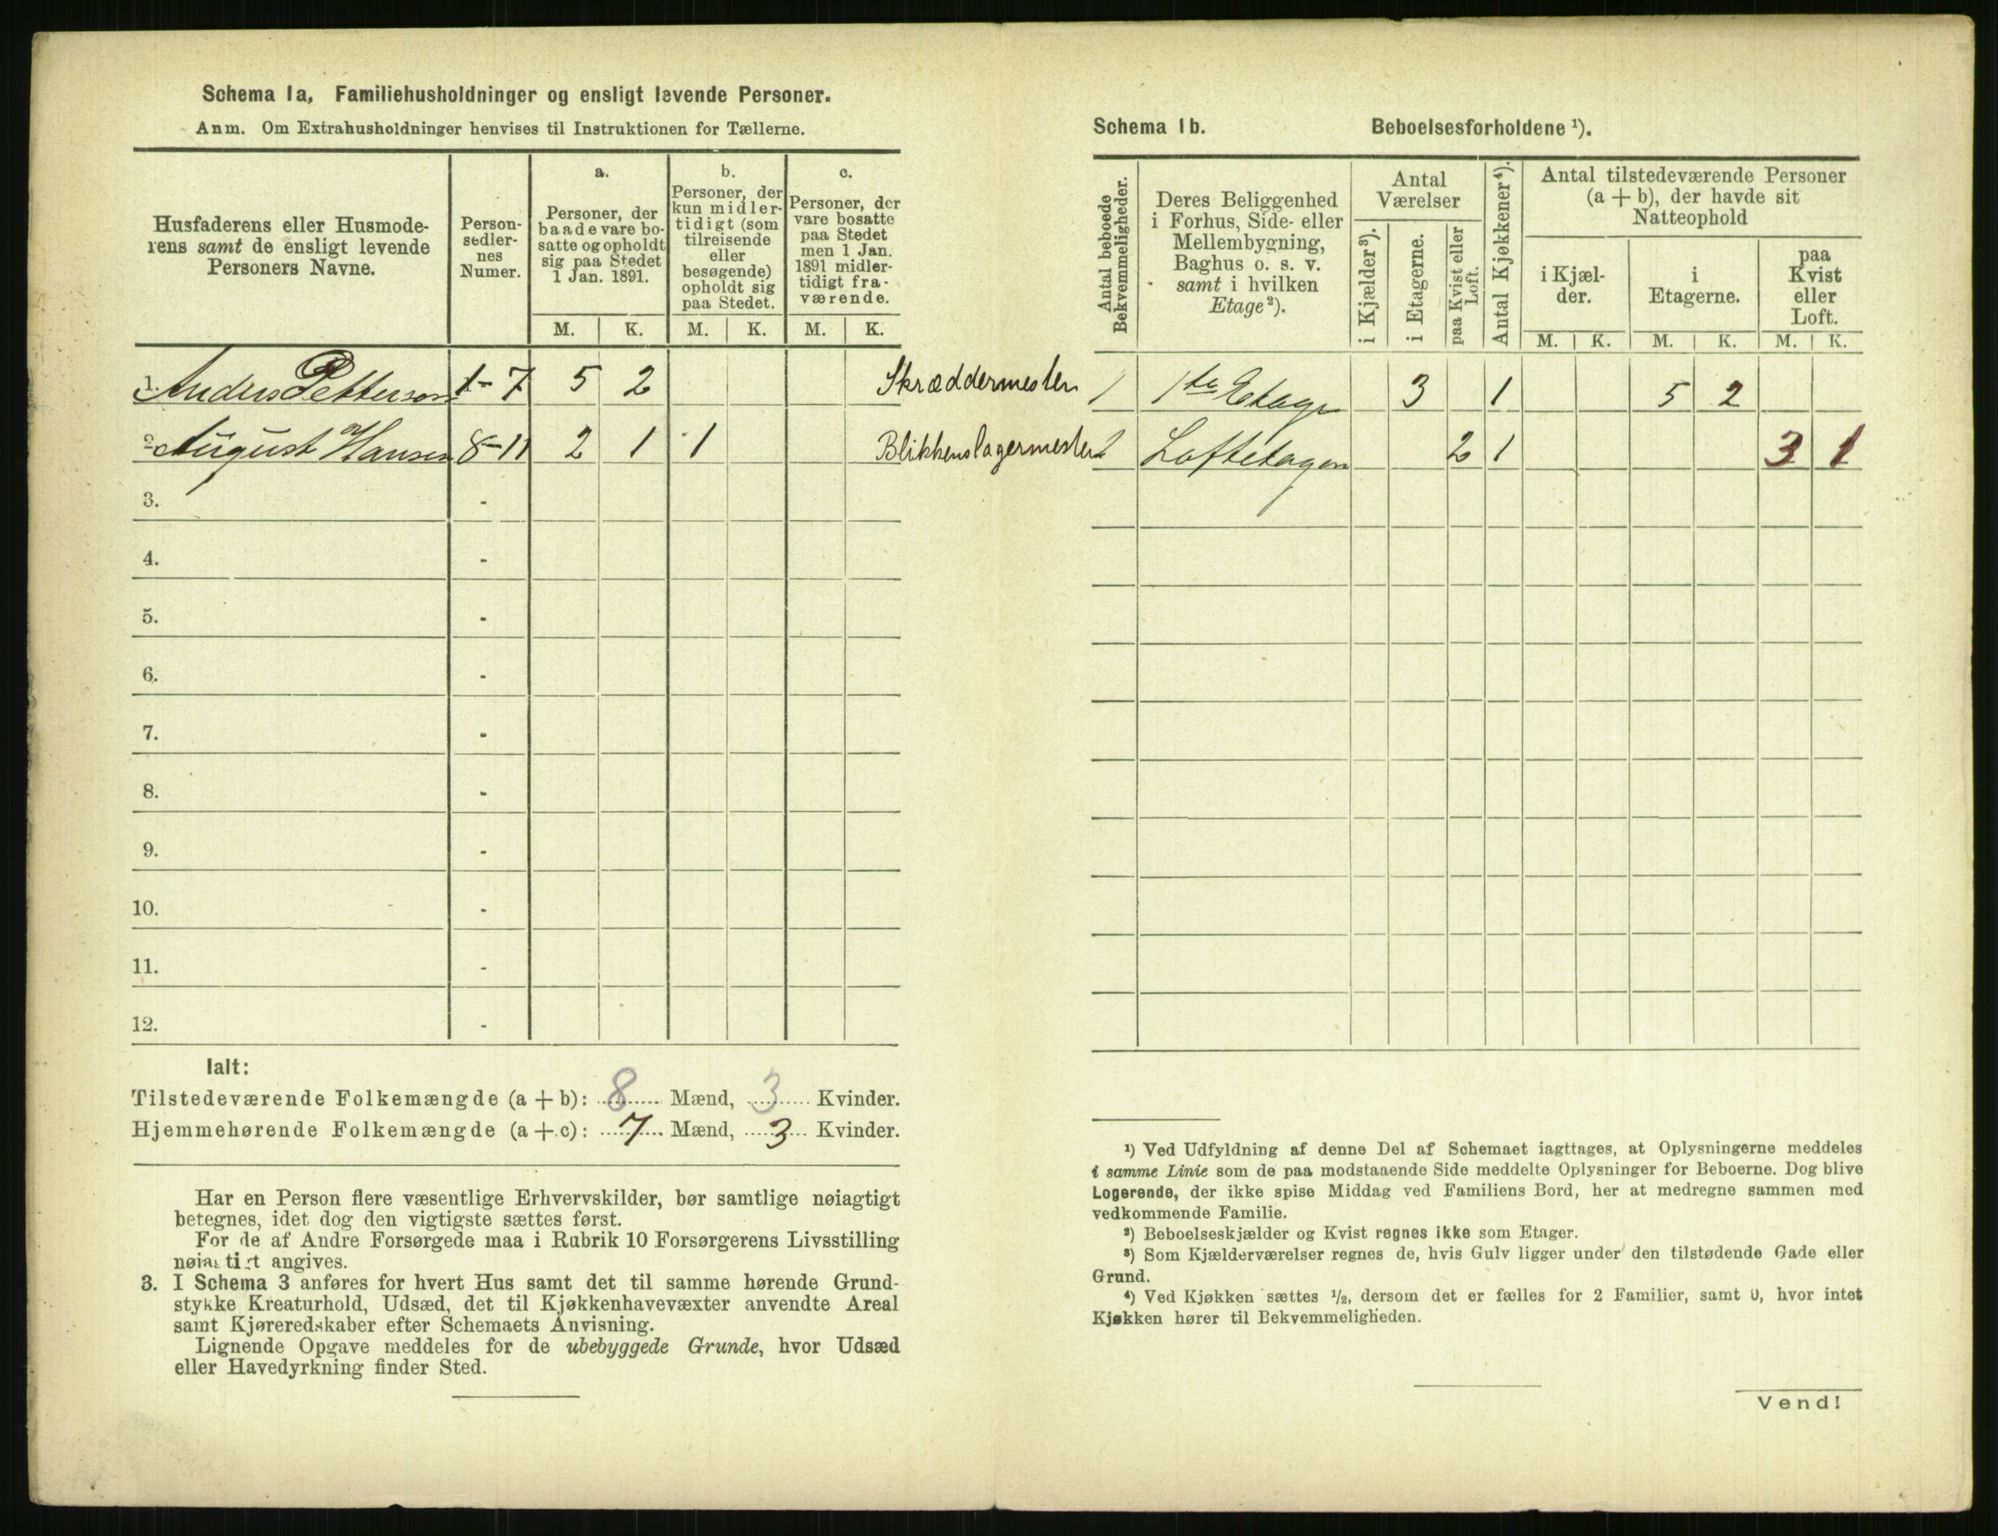 Schema 1a, Familiehusholdninger og ensligt levende Personer.
Anm. Om Extrahusholdninger henvises til Instruktionen for Tællerne.
Husfaderens eller Husmode-
rens samt de ensligt levende
Personers Navne.
Person-
sedler-
nes
Numer.
a.
Personer, der
baade vare bo-
satte og opholdt
sig paa Stedet
1 Jan. 1891.
b.
Personer, der
kun midler-
tidigt (som
tilreisende
eller
besøgende)
opholdt sig
paa Stedet.
c.
Personer, der
vare bosatte
paa Stedet
men 1 Jan.
1891 midler-
tidigt fra-
værende.
M. K. M. K. M. K.
1. Anders Petterson 1-7 5 2 Skræddermester
2. August Hansen 8-11 2 1 1 Blikkenslagermester
3. -
4. -
5. -
6. -
7. -
8. -
9. -
10. -
11. -
12. -
Ialt:
Tilstedeværende Folkemængde (a + b): 8 Mænd, 3 Kvinder.
Hjemmehørende Folkemængde (a + c): 7 Mænd, 3 Kvinder.
Har en Person flere væsentlige Erhvervskilder, bør samtlige nøiagtigt
betegnes, idet dog den vigtigste sættes først.
For de af Andre Forsørgede maa i Rubrik 10 Forsørgerens Livsstilling
nøiagtigt angives.
3. I Schema 3 anføres for hvert Hus samt det til samme hørende Grund-
stykke Kreaturhold, Udsæd, det til Kjøkkenhavevæxter anvendte Areal
samt Kjøreredskaber efter Schemaets Anvisning.
Lignende Opgave meddeles for de ubebyggede Grunde, hvor Udsæd
eller Havedyrkning finder Sted.
Schema 1b. Beboelsesforholdene ¹).
Antal beboede
Bekvemmeligheder.
Deres Beliggenhed
i Forhus, Side- eller
Mellembygning,
Baghus o. s. v.
samt i hvilken
Etage ²).
Antal
Værelser
i Kjælder ³).
i Etagerne.
paa Kvist eller
Loft.
Antal Kjøkkener ⁴).
Antal tilstedeværende Personer
(a + b), der havde sit
Natteophold
i Kjæl-
der.
i
Etagerne.
paa
Kvist
eller
Loft.
M. K. M. K. M. K.
1 1ste Etage 3 1 5 2
1 Loftetagen 2 1 3 1
¹) Ved Udfyldning af denne Del af Schemaet iagttages, at Oplysningerne meddeles
i samme Linie som de paa modstaaende Side meddelte Oplysninger for Beboerne. Dog blive
Logerende, der ikke spise Middag ved Familiens Bord, her at medregne sammen med
vedkommende Familie.
²) Beboelseskjælder og Kvist regnes ikke som Etager.
³) Som Kjælderværelser regnes de, hvis Gulv ligger under den tilstødende Gade eller
Grund.
⁴) Ved Kjøkken sættes ½, dersom det er fælles for 2 Familier, samt 0, hvor intet
Kjøkken hører til Bekvemmeligheden.
Vend!